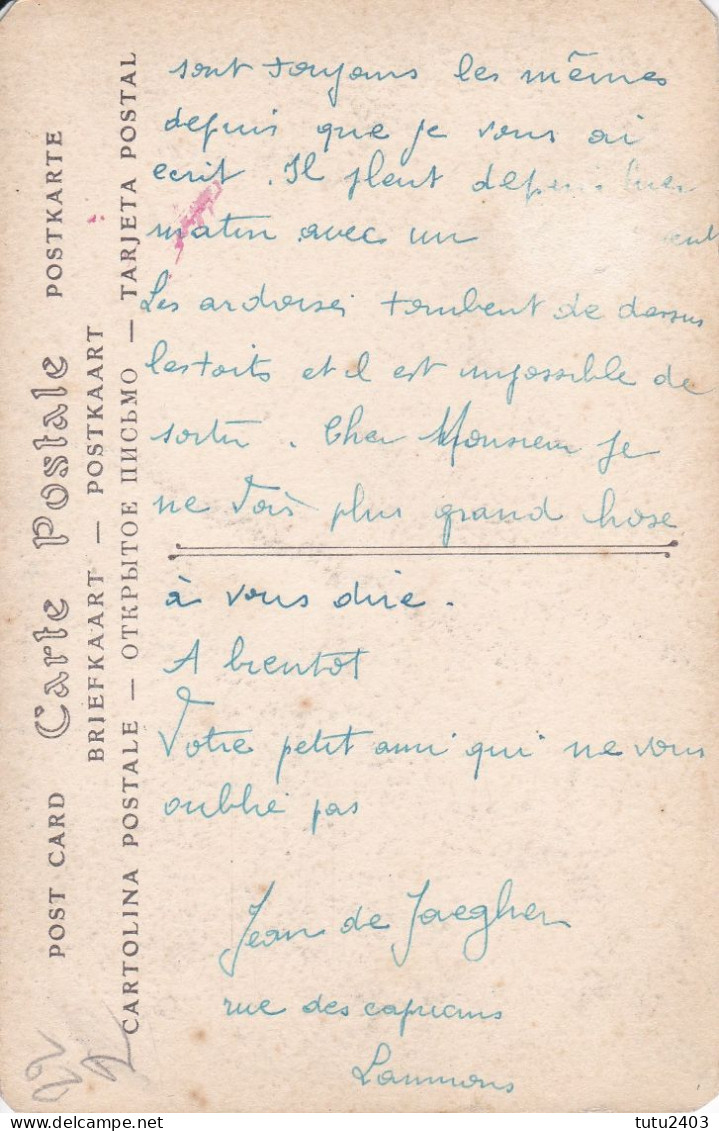 POST CARD Carte Postale POSTKARTE
BRIEFKAART — POSTKAART
CARTOLINA POSTALE — ОТКРЫТОЕ ПИСЬМО — TARJETA POSTAL
sont toujours les mêmes
depuis que je vous ai
ecrit. Il pleut depuis hier
matin avec un
Les ardoises tombent de dessus
les toits et il est impossible de
sortir. Cher Monsieur je
ne vois plus grand hose
à vous dire.
A bientot
Votre petit ami qui ne vous
oublie pas
Jean de Jaegher
rue des capucins
22
2
tutu2403